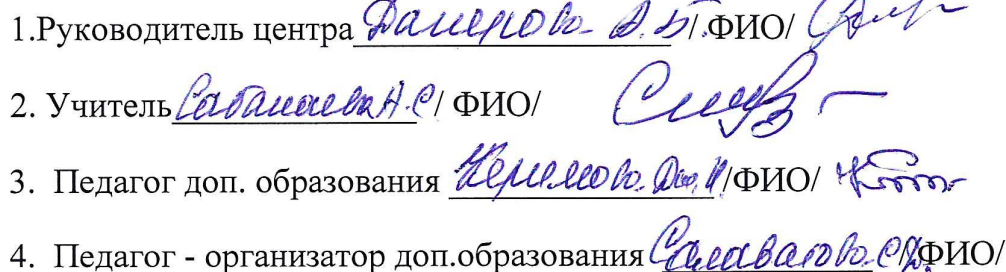 1.Руководитель центра Данерово А.Б/.ФИО/
2. Учитель Сабанаева А.С/ ФИО/
3. Педагог доп. образования Керимова Дж.И/ФИО/
4. Педагог - организатор доп.образования Салаватова С. /ФИО/